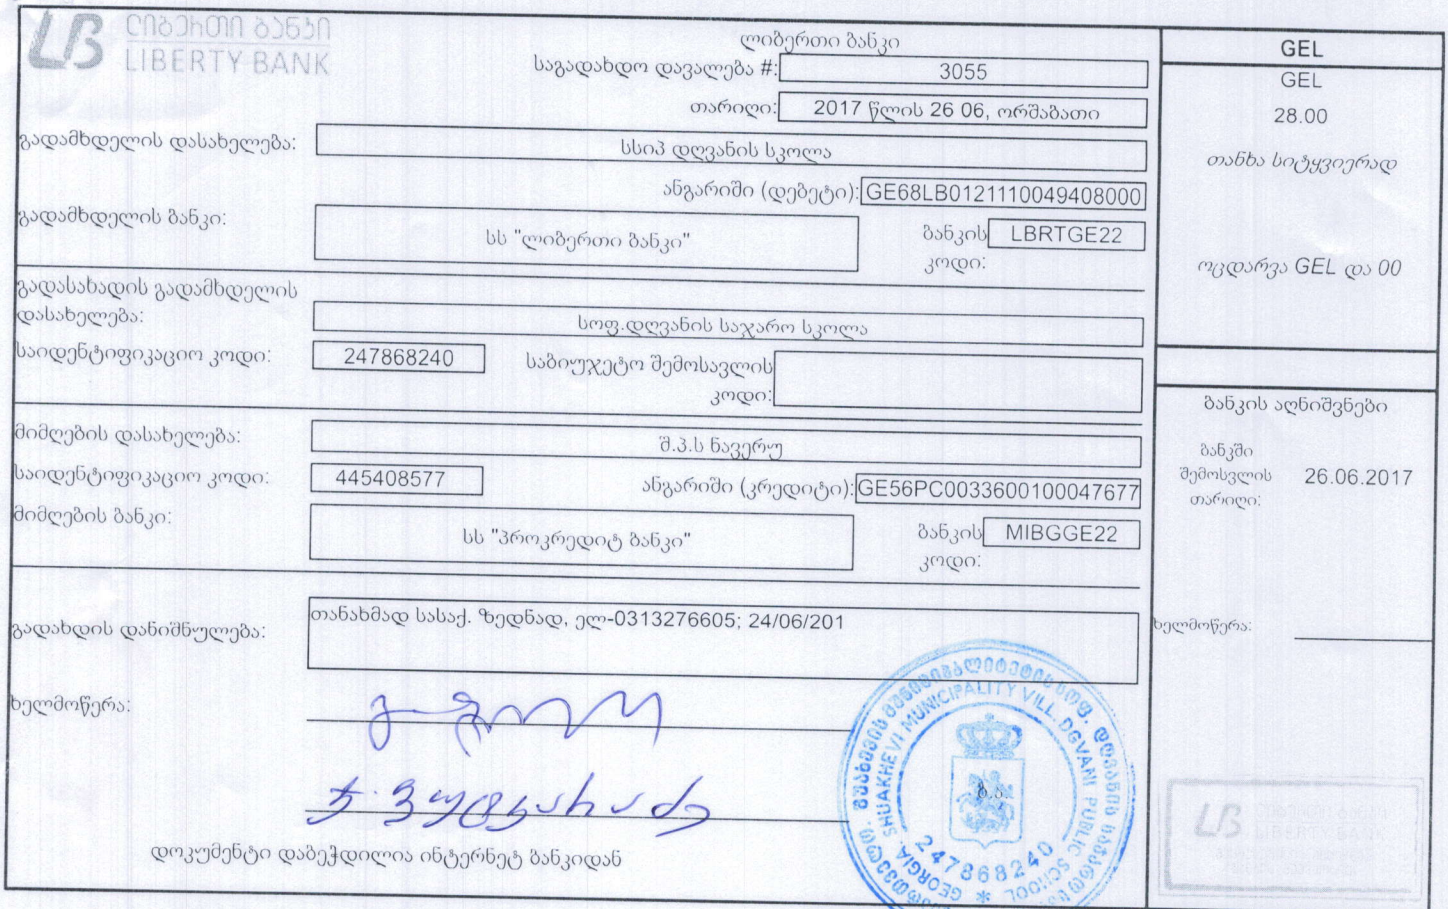 ლიბერთი ბანკი
LIBERTY BANK
ლიბერთი ბანკი
საგადახდო დავალება #: 3055
თარიღი: 2017 წლის 26 06, ორშაბათი
გადამხდელის დასახელება: სსიპ დღვანის სკოლა
ანგარიში (დებეტი): GE68LB0121110049408000
გადამხდელის ბანკი: სს "ლიბერთი ბანკი" ბანკის კოდი: LBRTGE22
გადასახადის გადამხდელის
დასახელება: სოფ.დღვანის საჯარო სკოლა
საიდენტიფიკაციო კოდი: 247868240 საბიუჯეტო შემოსავლის
კოდი:
მიმღების დასახელება: შ.პ.ს ნავერუ
საიდენტიფიკაციო კოდი: 445408577 ანგარიში (კრედიტი): GE56PC0033600100047677
მიმღების ბანკი: სს "პროკრედიტ ბანკი" ბანკის კოდი: MIBGGE22
გადახდის დანიშნულება: თანახმად სასაქ. ზედნად, ელ-0313276605; 24/06/201
ხელმოწერა:
დოკუმენტი დაბეჭდილია ინტერნეტ ბანკიდან
GEL
GEL
28.00
თანხა სიტყვიერად
ოცდარვა GEL და 00
ბანკის აღნიშვნები
ბანკში
შემოსვლის 26.06.2017
თარიღი:
ხელმოწერა:
SHUAKHEVI MUNICIPALITY VILL. DGVANI PUBLIC SCHOOL
GEORGIA
ბ.ა.
247868240
LIBERTY BANK